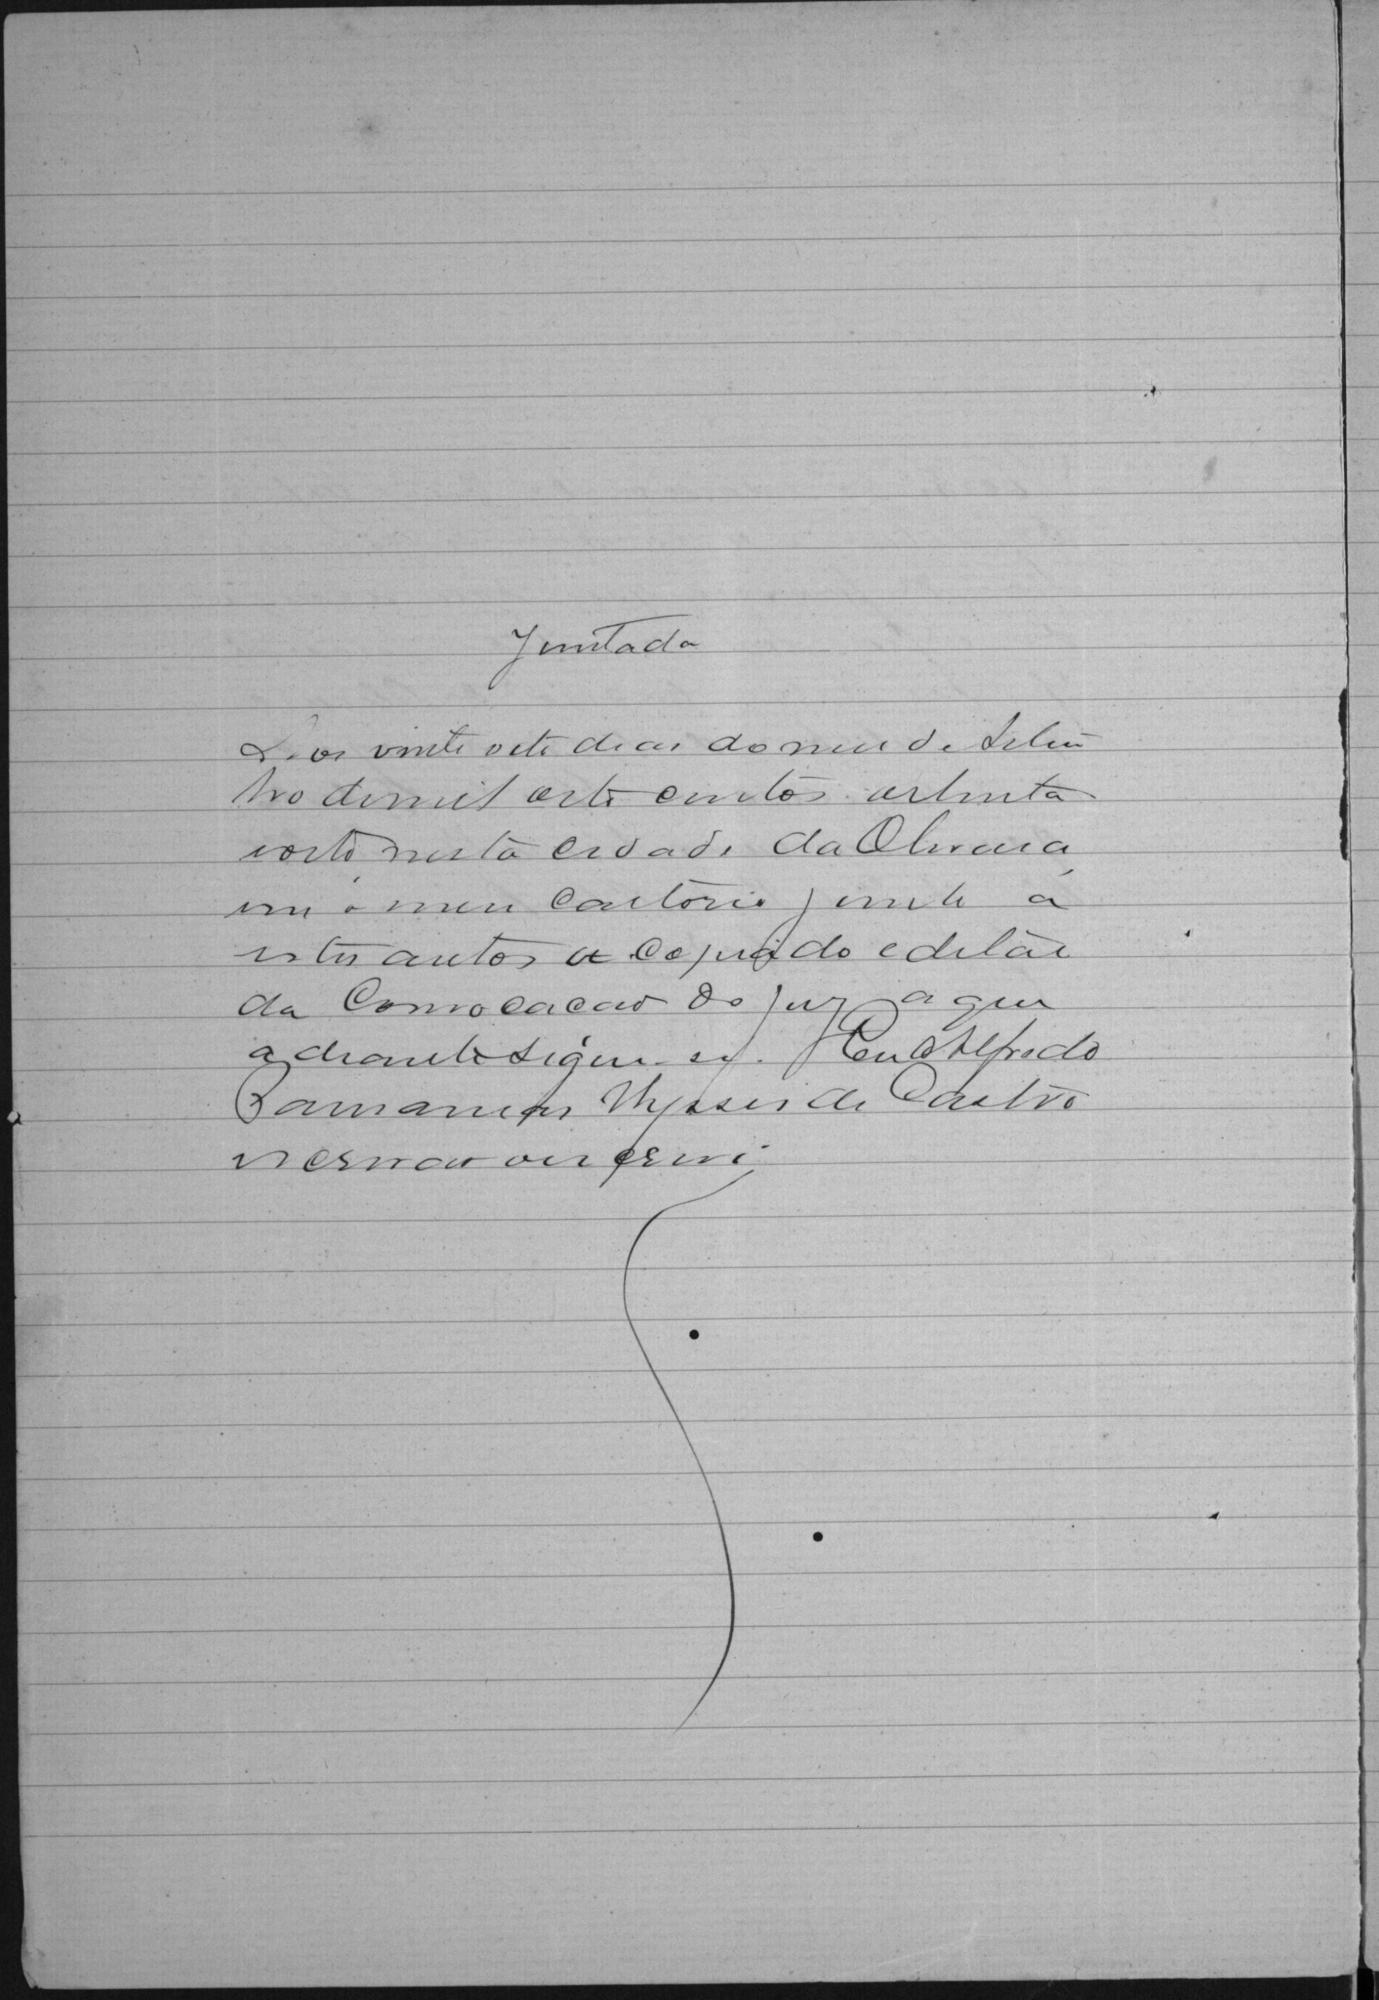 Juntada
Aos vinte oito dias do mez de Setem
bro de mil oito centos oitenta
e oito nesta cidade da Oliveira
em o meu Cartorio junto a
estes autos a copia do edital
da Convocacao do jury a que
adiante segue-se. Eu Alfredo
Ulysses de Castro
escrivao que escrevi